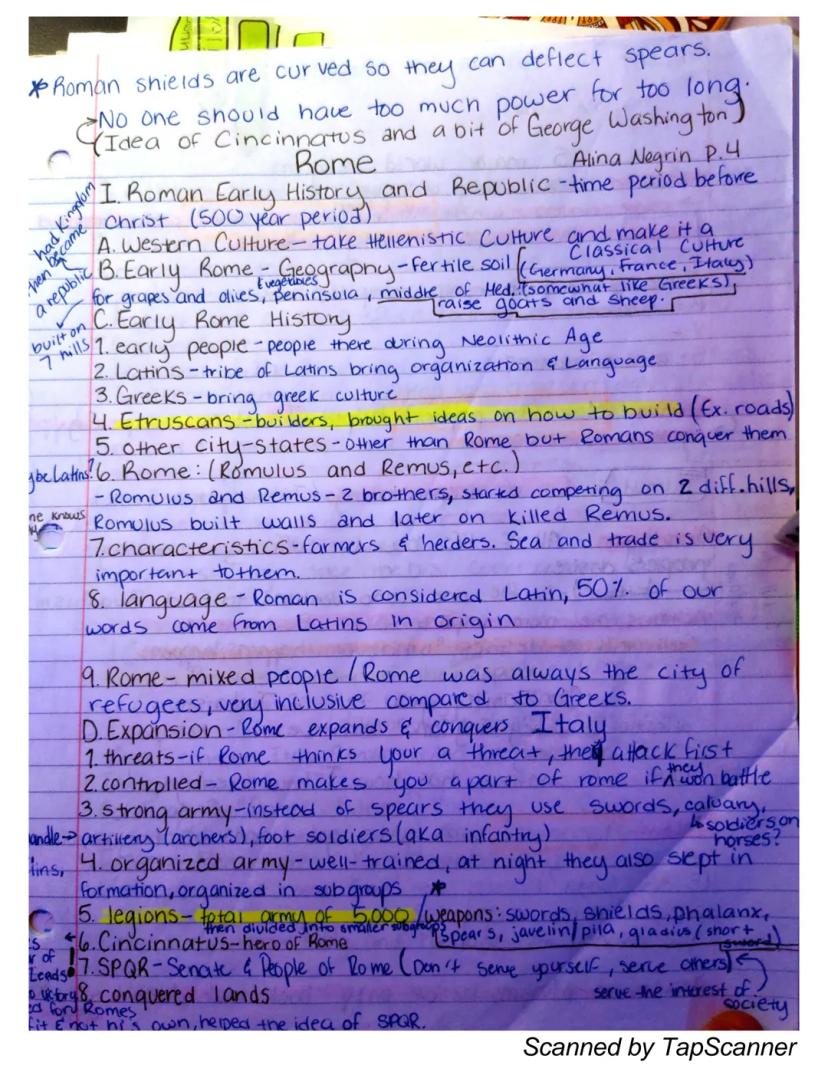 *Roman shields are curved so they can deflect spears.
→No one should have too much power for too long.
(Idea of Cincinnatus and a bit of George Washington)
Rome Alina Negrin P.4
I. Roman Early History and Republic - time period before
Christ (500 year period)
had Kingdom
then became
a republic
built on
7 hills
A. Western Culture - take Hellenistic Culture and make it a
Classical Culture
B. Early Rome - Geography - fertile soil (Germany, France, Italy)
vegetables
for grapes and olives, peninsula, middle of Med. (somewhat like Greeks),
raise goats and sheep.
C. Early Rome History
1. early people - people there during Neolithic Age
2. Latins - tribe of Latins bring organization & Language
3. Greeks - bring greek culture
4. Etruscans - builders, brought ideas on how to build (Ex. roads)
5. other city-states - other than Rome but Romans conquer them
ybe Latins? 6. Rome: (Romulus and Remus, etc.)
- Romulus and Remus - 2 brothers, started competing on 2 diff. hills,
ne knows Romulus built walls and later on killed Remus.
7. characteristics - farmers & herders. Sea and trade is very
important to them.
8. language - Roman is considered Latin, 50% of our
words come from Latins in origin
9. Rome - mixed people / Rome was always the city of
refugees, very inclusive compared to Greeks.
D. Expansion - Rome expands & conquers Italy
1. threats - if Rome thinks your a threat, they attack first
2. controlled - Rome makes you a part of rome if they won battle
3. strong army - instead of spears they use swords, calvary,
↳ soldiers on
horses?
andle → artillery (archers), foot soldiers (aka infantry)
tins, 4. organized army - well-trained, at night they also slept in
formation, organized in subgroups *
5. legions - total army of 5,000 / weapons: swords, shields, phalanx,
then divided into smaller subgroups
spears, javelin/pila, gladius (short
sword)
6. Cincinnatus - hero of Rome
7. SPQR - Senate & People of Rome (Don't serve yourself, serve others)
serve the interest of
society
8. conquered lands
Romes
fit & not his own, helped the idea of SPQR.
Scanned by TapScanner